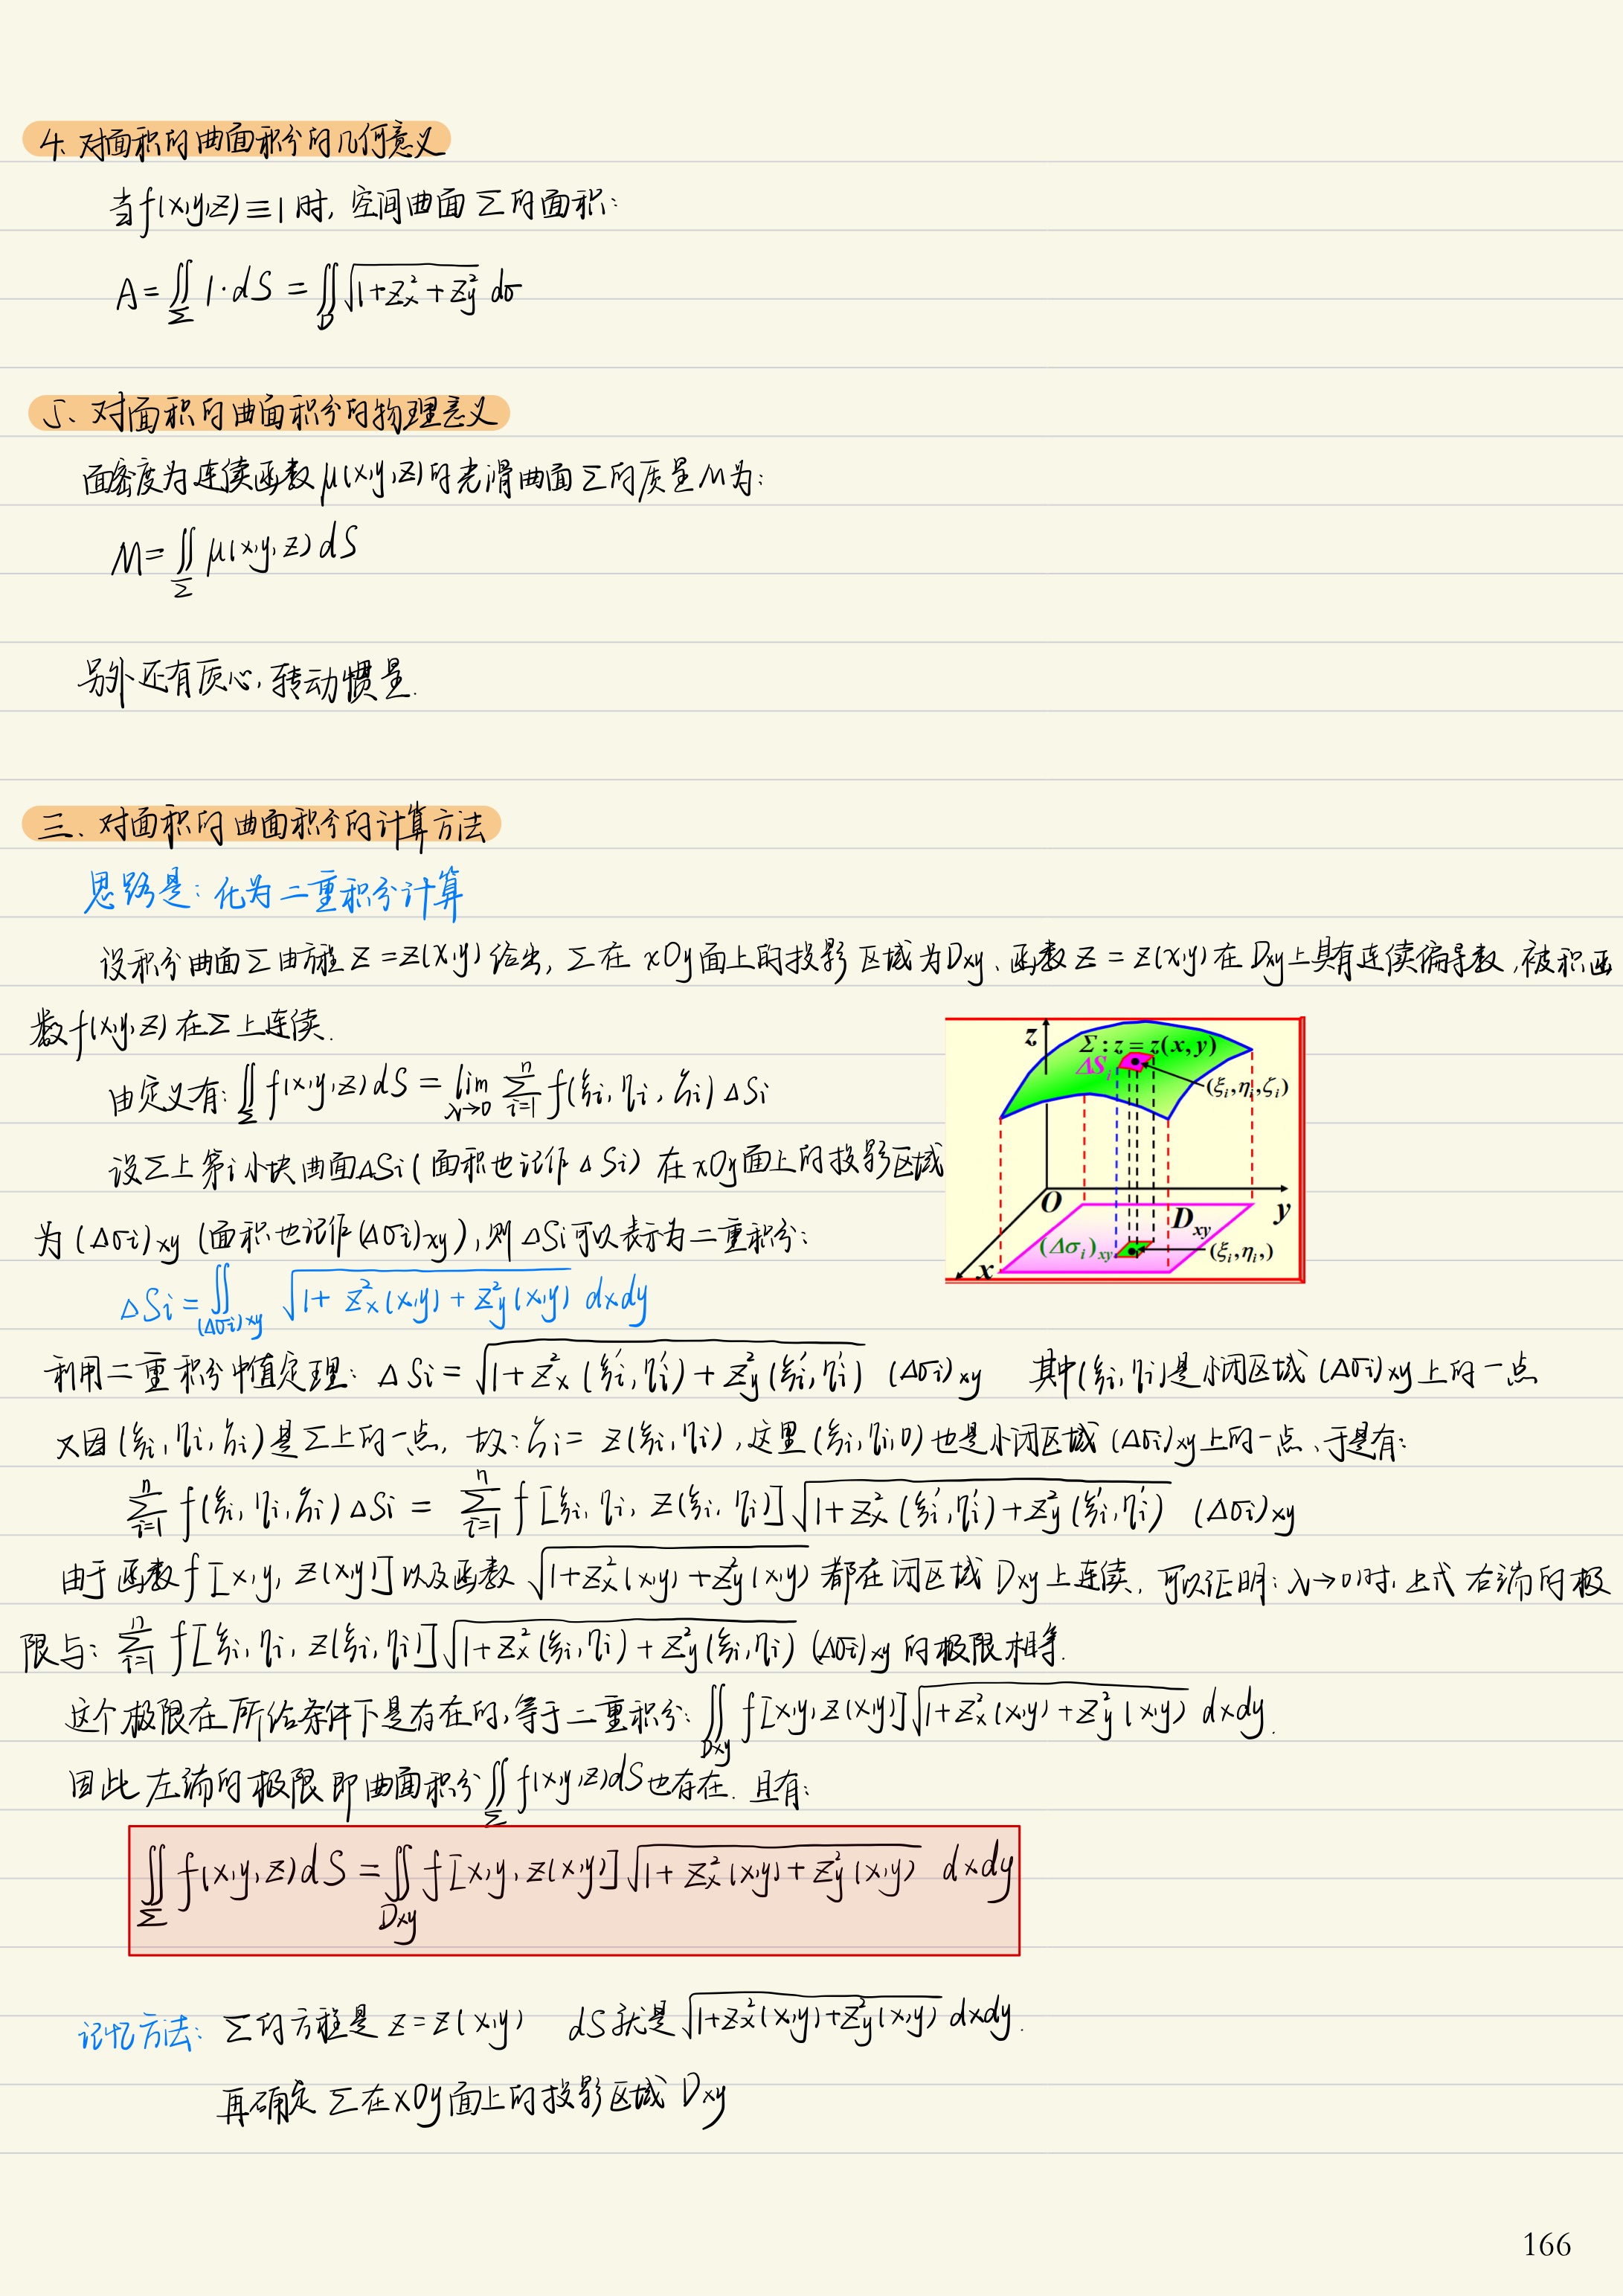 4、对面积的曲面积分的几何意义
当f(x,y,z)≡1时, 空间曲面Σ的面积:
A=∬_Σ 1·dS=∬_D √(1+z_x²+z_y²) dσ
5、对面积的曲面积分的物理意义
面密度为连续函数μ(x,y,z)的光滑曲面Σ的质量M为:
M=∬_Σ μ(x,y,z)dS
另外还有质心,转动惯量.
三、对面积的曲面积分的计算方法
思路是:化为二重积分计算
设积分曲面Σ由方程z=z(x,y)给出,Σ在xOy面上的投影区域为Dxy、函数z=z(x,y)在Dxy上具有连续偏导数,被积函
数f(x,y,z)在Σ上连续.
由定义有:∬_Σ f(x,y,z)dS=lim_{λ→0} Σ_{i=1}^{n} f(ξi,ηi,ζi)ΔSi
设Σ上第i小块曲面ΔSi(面积也记作ΔSi)在xOy面上的投影区域
为(Δσi)xy(面积也记作(Δσi)xy),则ΔSi可以表示为二重积分:
z
Σ:z=z(x,y)
ΔS_i
(ξ_i,η_i,ζ_i)
O
y
D_xy
(Δσ_i)_xy
(ξ_i,η_i,)
x
ΔSi=∬_{(Δσi)xy} √(1+z_x²(x,y)+z_y²(x,y)) dxdy
利用二重积分中值定理:ΔSi=√(1+z_x²(ξi',ηi')+z_y²(ξi',ηi')) (Δσi)xy 其中(ξi',ηi')是小闭区域(Δσi)xy上的一点
又因(ξi,ηi,ζi)是Σ上的一点, 故:ζi=z(ξi,ηi),这里(ξi,ηi,0)也是小闭区域(Δσi)xy上的一点、于是有:
Σ_{i=1}^{n} f(ξi,ηi,ζi)ΔSi=Σ_{i=1}^{n} f[ξi,ηi,z(ξi,ηi)]√(1+z_x²(ξi',ηi')+z_y²(ξi',ηi')) (Δσi)xy
由于函数f[x,y,z(x,y)]以及函数√(1+z_x²(x,y)+z_y²(x,y))都在闭区域Dxy上连续, 可以证明:λ→0时,上式右端的极
限与:Σ_{i=1}^{n} f[ξi,ηi,z(ξi,ηi)]√(1+z_x²(ξi,ηi)+z_y²(ξi,ηi)) (Δσi)xy的极限相等.
这个极限在所给条件下是存在的,等于二重积分:∬_{Dxy} f[x,y,z(x,y)]√(1+z_x²(x,y)+z_y²(x,y)) dxdy.
因此左端的极限即曲面积分∬_Σ f(x,y,z)dS也存在. 且有:
∬_Σ f(x,y,z)dS=∬_{Dxy} f[x,y,z(x,y)]√(1+z_x²(x,y)+z_y²(x,y)) dxdy
记忆方法: Σ的方程是z=z(x,y) dS就是√(1+z_x²(x,y)+z_y²(x,y)) dxdy.
再确定Σ在xOy面上的投影区域Dxy
166